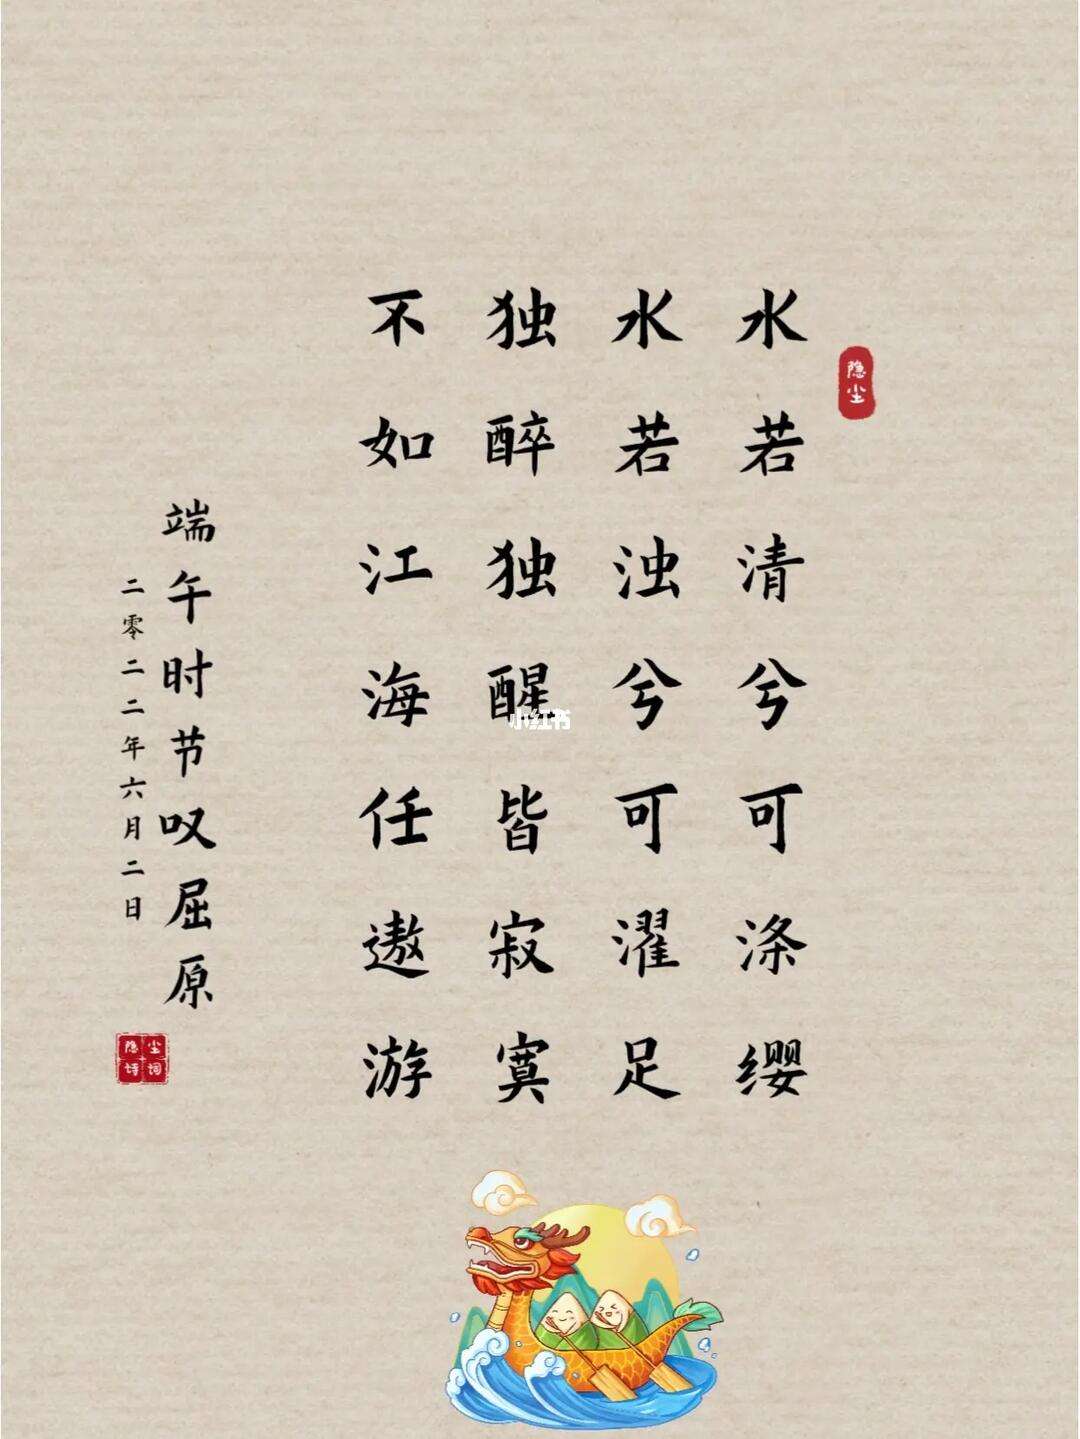 隐尘
水若清兮可涤缨
水若浊兮可濯足
独醉独醒皆寂寞
不如江海任遨游
端午时节叹屈原
二零二二年六月二日
尘词
隐诗
小红书